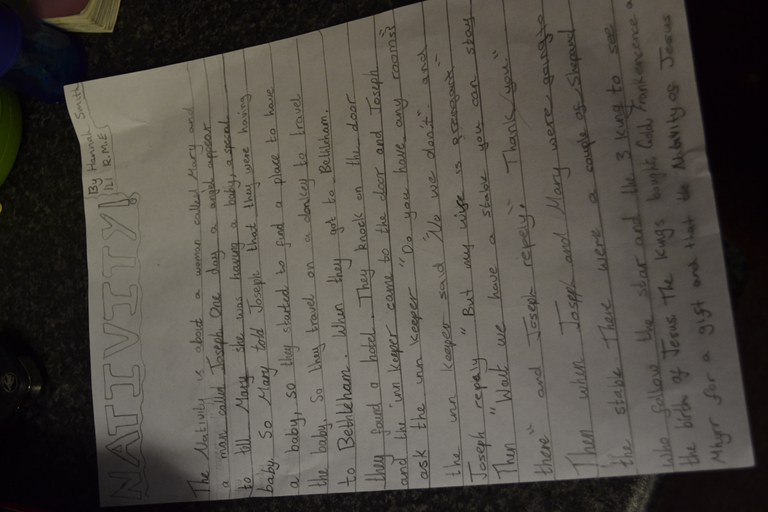 NATIVITY!
By Hannah Smith
1L1 R.M.E
The Nativity is about a woman called Mary and
a man called Joseph. One day a angle appear
to tell Mary she was having a baby, a special
baby. So Mary told Joseph that they were having
a baby, so they started to find a place to have
the baby. So they travel on a donkey to travel
to Bethleham. When they got to Bethleham.
they found a hotel. They knock on the door
and the inn keeper came to the door and Joseph
ask the inn keeper "Do you have any rooms?"
the inn keeper said "No we don't" and
Joseph repaly "But my wife is greagant"
Then "Wait we have a stable you can stay
there" and Joseph repaly "Thank you"
Then when Joseph and Mary were going to
the stable There were a couple of Shepard
who follow the star and the 3 king to see
the birth of Jesus. The kings bought Gold, Frankencence a
Mhyr for a gift and that the Nativity of Jesus